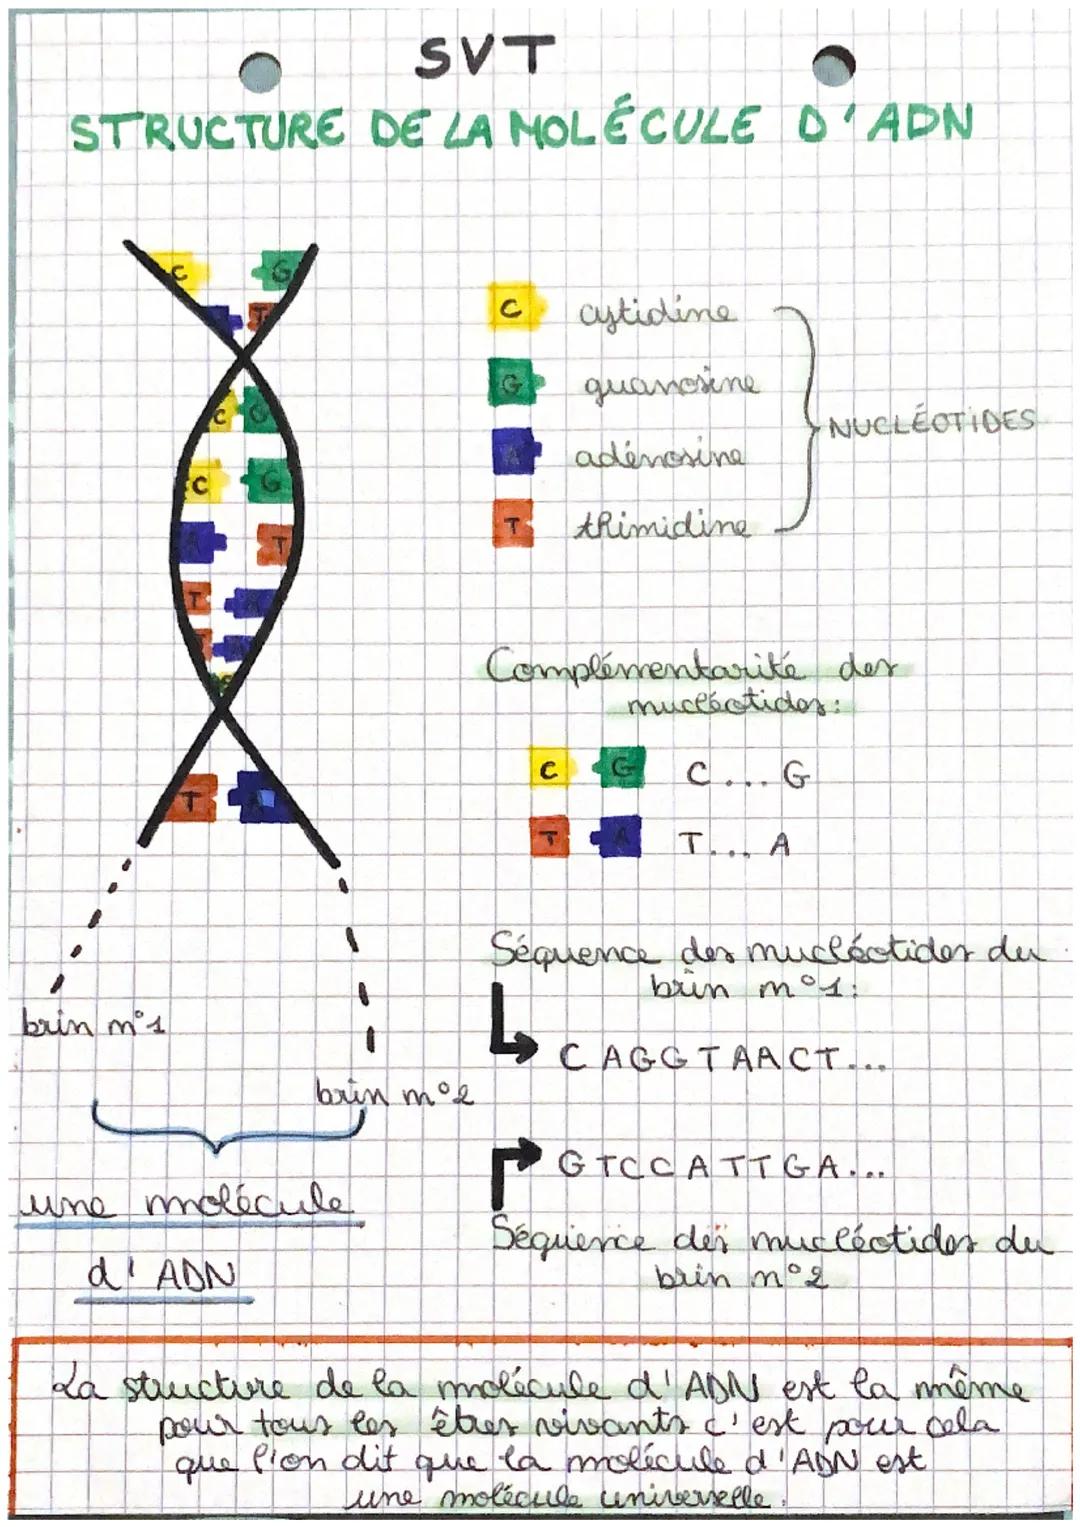 SVT
STRUCTURE DE LA MOLÉCULE D'ADN
C G
T
C G
C G
A T
T A
T A
T A
C cytidine
G guanosine
A adénosine
T thimidine
NUCLÉOTIDES
Complémentarité des
nucléotides:
C G C...G
T A T....A
Séquence des nucléotides du
brin n°1:
CAGGTAACT...
GTCCATTGA...
Séquence des nucléotides du
brin n°2
brin n°1
brin n°2
une molécule
d'ADN
La structure de la molécule d'ADN est la même
pour tous les êtres vivants c'est pour cela
que l'on dit que la molécule d'ADN est
une molécule universelle.